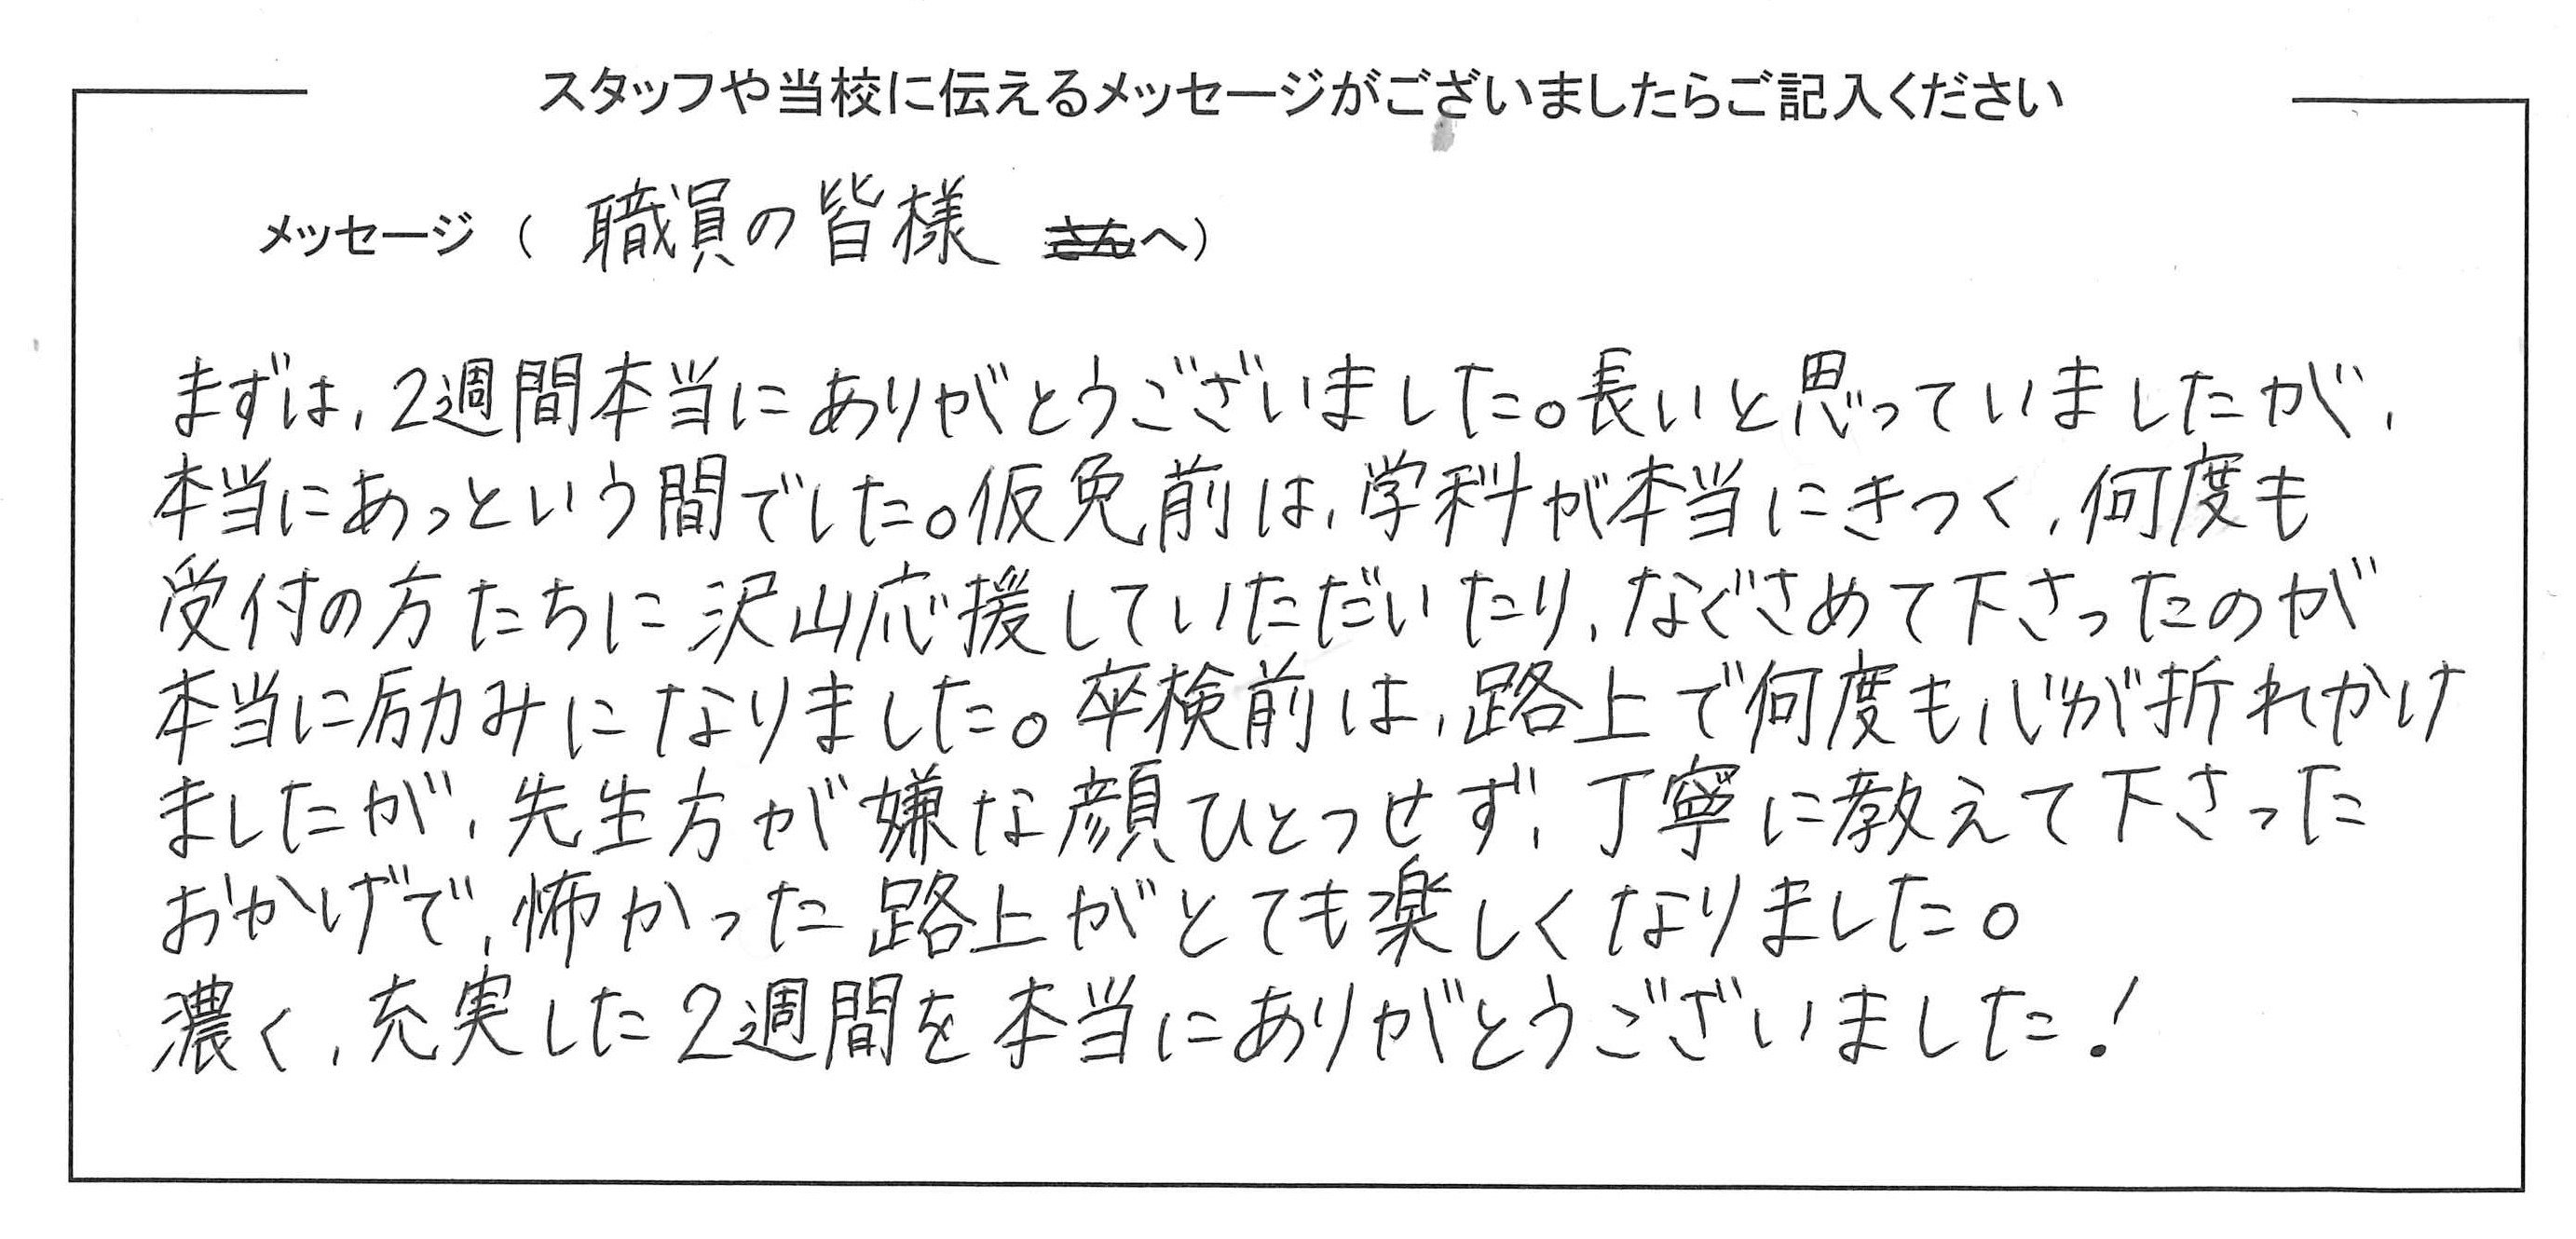 スタッフや当校に伝えるメッセージがございましたらご記入ください
メッセージ（ 職員の皆様 さんへ）
まずは、2週間本当にありがとうございました。長いと思っていましたが、
本当にあっという間でした。仮免前は、学科が本当にきつく、何度も
受付の方たちに沢山応援していただいたり、なぐさめて下さったのが
本当に励みになりました。卒検前は、路上で何度も心が折れかけ
ましたが、先生方が嫌な顔ひとつせず、丁寧に教えて下さった
おかげで、怖かった路上がとても楽しくなりました。
濃く、充実した2週間を本当にありがとうございました!